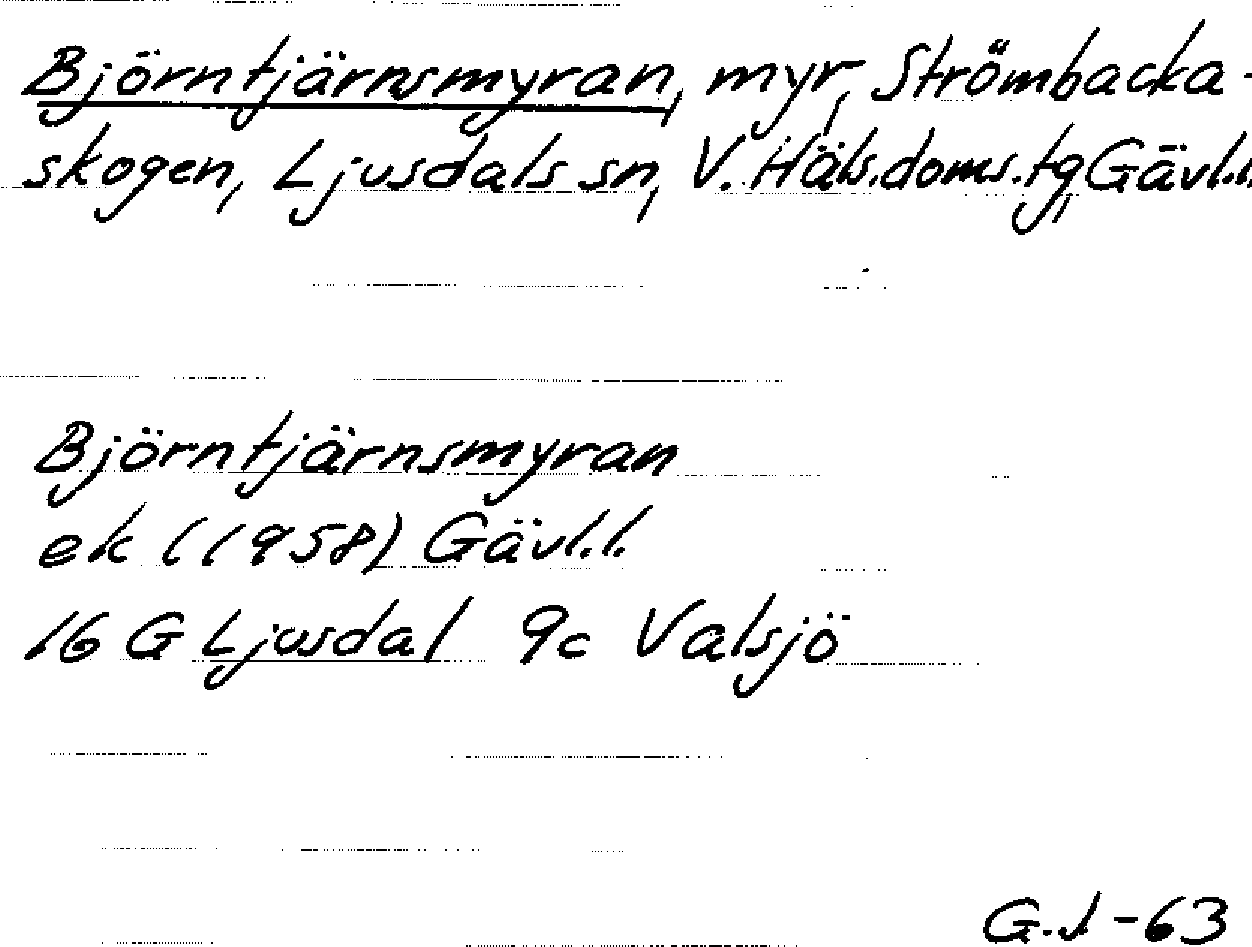 Björntjärnsmyran, myr, Strömbacka-
skogen, Ljusdals sn, V. Häls.doms.tg, Gävl.l.
Björntjärnsmyran
ek (1958) Gävl.l.
16 G Ljusdal 9c Valsjö
G.J-63